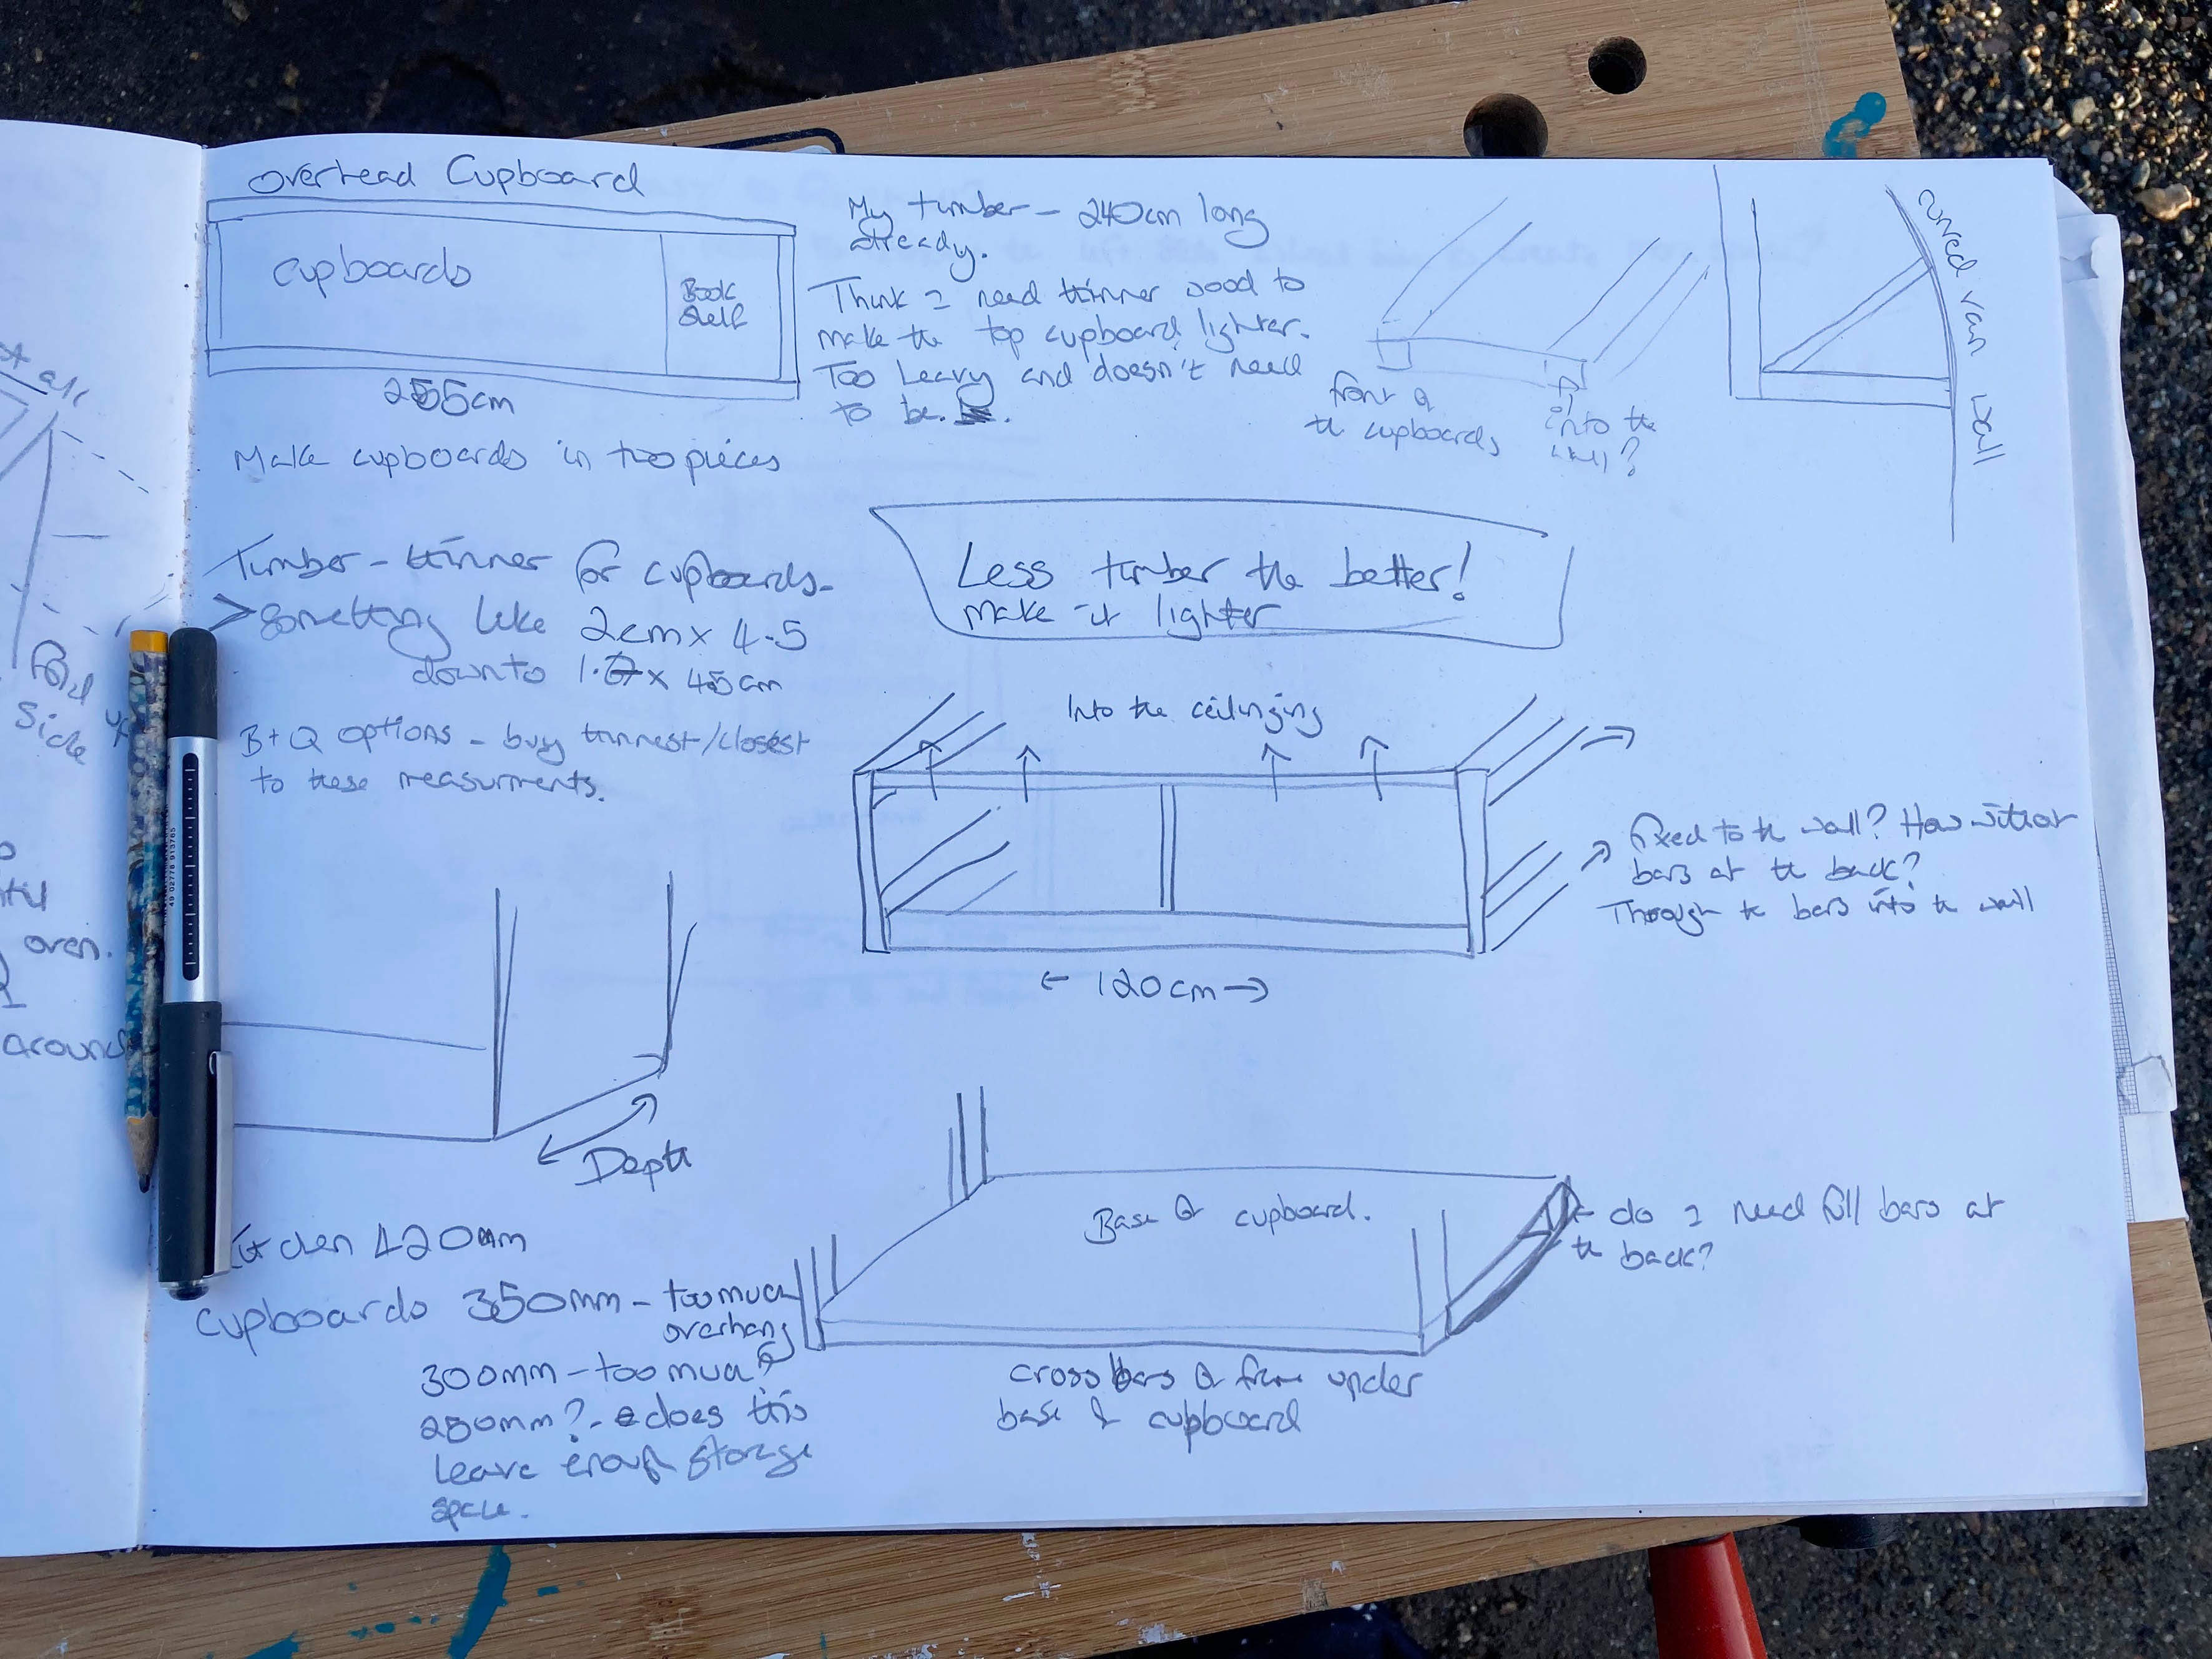 Overhead Cupboard
Cupboards
Book
Shelf
255cm
Make cupboards in two pieces
My timber - 240cm long
already.
Think I need thinner wood to
make the top cupboard lighter.
Too heavy and doesn't need
to be.
front of
the cupboards
into the
wall?
curved van wall
Timber - thinner for cupboards -
> Something like 2cm x 4.5
down to x 4.5cm
B+Q options - buy thinnest/closest
to these measurments.
Less timber the better!
make it lighter
Into the ceilinging
fixed to the wall? How without
bars at the back?
Through the bars into the wall
← 120cm →
Depth
420mm
Cupboards 350mm - too much
overhang
300mm - too much?
280mm? - does this
leave enough storage
space.
Base of cupboard.
← do I need full bars at
the back?
cross bars of frame under
base of cupboard
all
Side
oven.
around
49 02778 913765